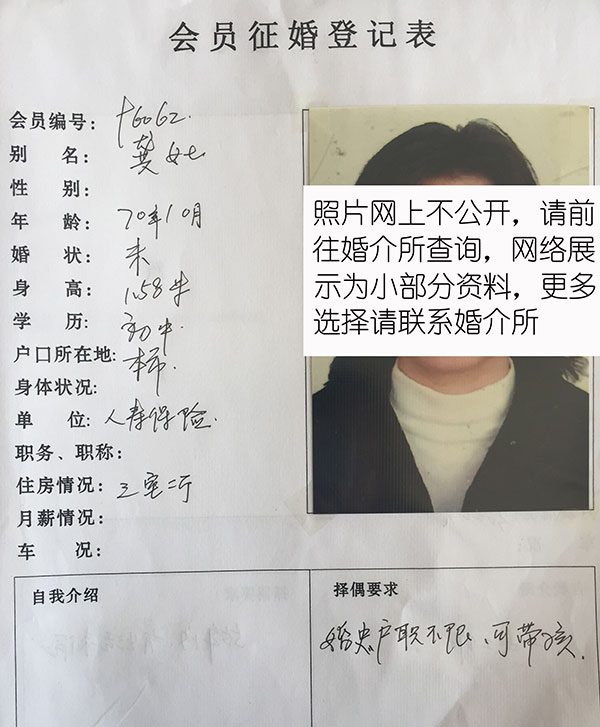 会员征婚登记表
会员编号：f6062.
别 名：龚女士
性 别：
年 龄：70年10月
婚 状：未
身 高：1.58米
学 历：初中
户口所在地：本市
身体状况：
单 位：人寿保险.
职务、职称：
住房情况：三室二厅
月薪情况：
车 况：
照片网上不公开，请前
往婚介所查询，网络展
示为小部分资料，更多
选择请联系婚介所
自我介绍
择偶要求
婚史户职不限、可带孩.